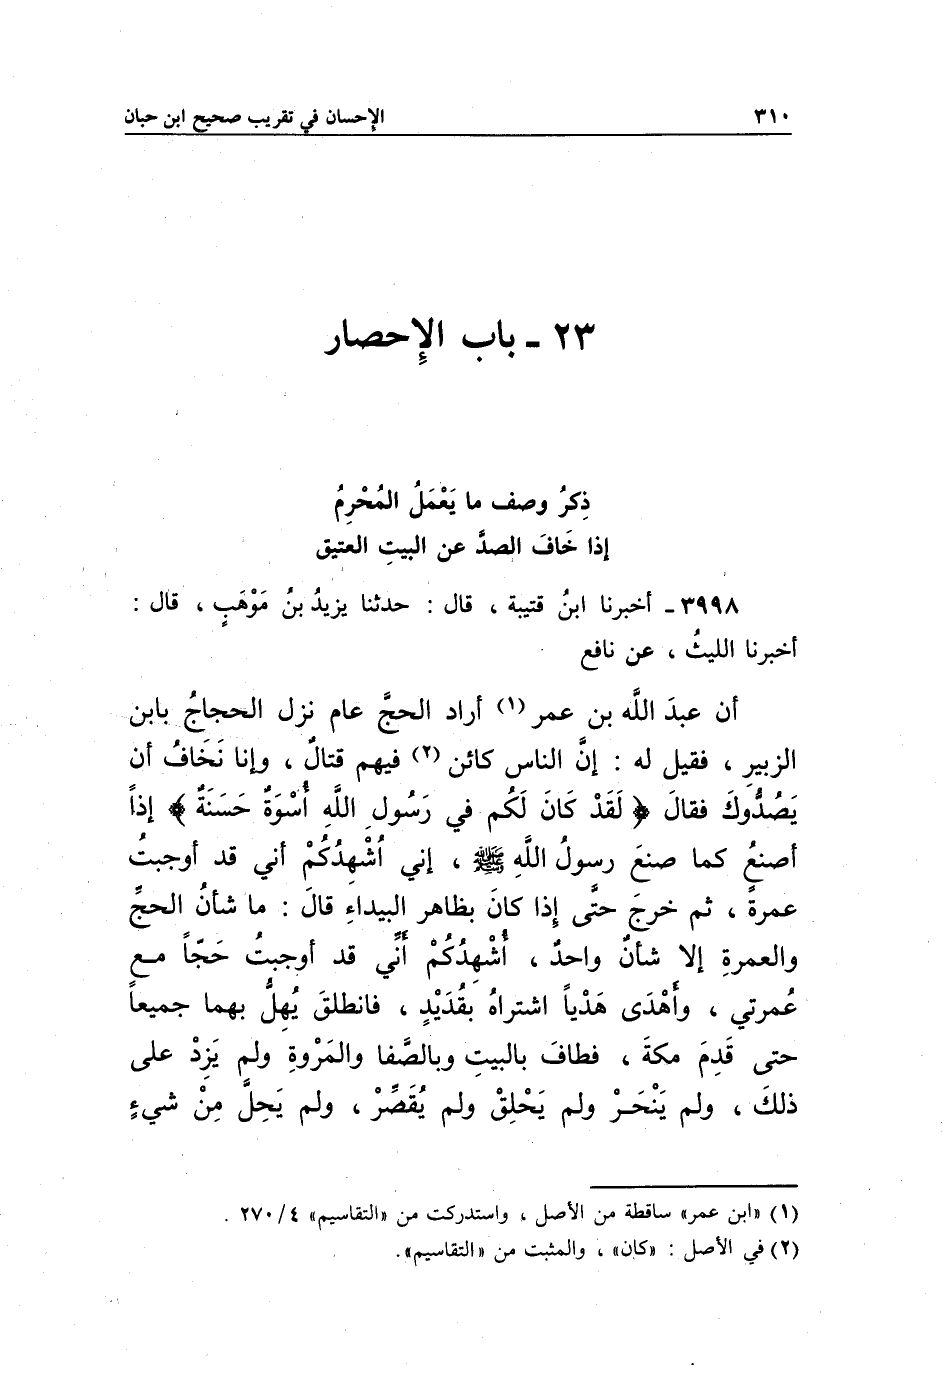 ٣١٠ الإحسان في تقريب صحيح ابن حبان
٢٣ ـ باب الإحصار
ذِكرُ وصف ما يَعْمَلُ المُحْرِمُ
إذا خَافَ الصدَّ عن البيتِ العتيق
٣٩٩٨ ـ أخبرنا ابنُ قتيبة ، قال : حدثنا يزيدُ بنُ مَوْهَبٍ ، قال :
أخبرنا الليثُ ، عن نافع
أن عبدَ اللَّه بن عمر (١) أراد الحجَّ عام نزل الحجاجُ بابن
الزبيرِ ، فقيل له : إنَّ الناس كائن (٢) فيهم قتالٌ ، وإنا نَخَافُ أن
يَصُدُّوكَ فقالَ ﴿ لَقَدْ كَانَ لَكُم في رَسُولِ اللَّهِ أُسْوَةٌ حَسَنَةٌ ﴾ إذاً
أصنعُ كما صنعَ رسولُ اللَّهِ ﷺ ، إني أُشْهِدُكُمْ أني قد أوجبتُ
عمرةً ، ثم خرجَ حتَّى إِذا كانَ بظاهر البيداءِ قالَ : ما شأنُ الحجِّ
والعمرةِ إلا شأنٌ واحدٌ ، أُشْهِدُكُمْ أَنِّي قد أوجبتُ حَجّاً مع
عُمرتي ، وأَهْدَى هَدْياً اشتراهُ بقُدَيْدٍ ، فانطلقَ يُهِلُّ بهما جميعاً
حتى قَدِمَ مكةَ ، فطافَ بالبيتِ وبالصَّفا والمَرْوةِ ولم يَزِدْ على
ذلكَ ، ولم يَنْحَرْ ولم يَحْلِقْ ولم يُقَصِّرْ ، ولم يَحِلَّ مِنْ شيءٍ
(١) «ابن عمر» ساقطة من الأصل ، واستدركت من «التقاسيم» ٤/ ٢٧٠ .
(٢) في الأصل : «كان» ، والمثبت من «التقاسيم».